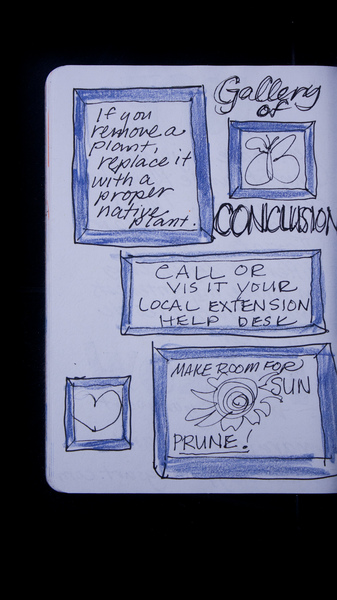 If you
remove a
plant,
replace it
with a
proper
native
plant.
Gallery
of
CONCLUSION
CALL OR
VISIT YOUR
LOCAL EXTENSION
HELP DESK
MAKE ROOM FOR
SUN
PRUNE!